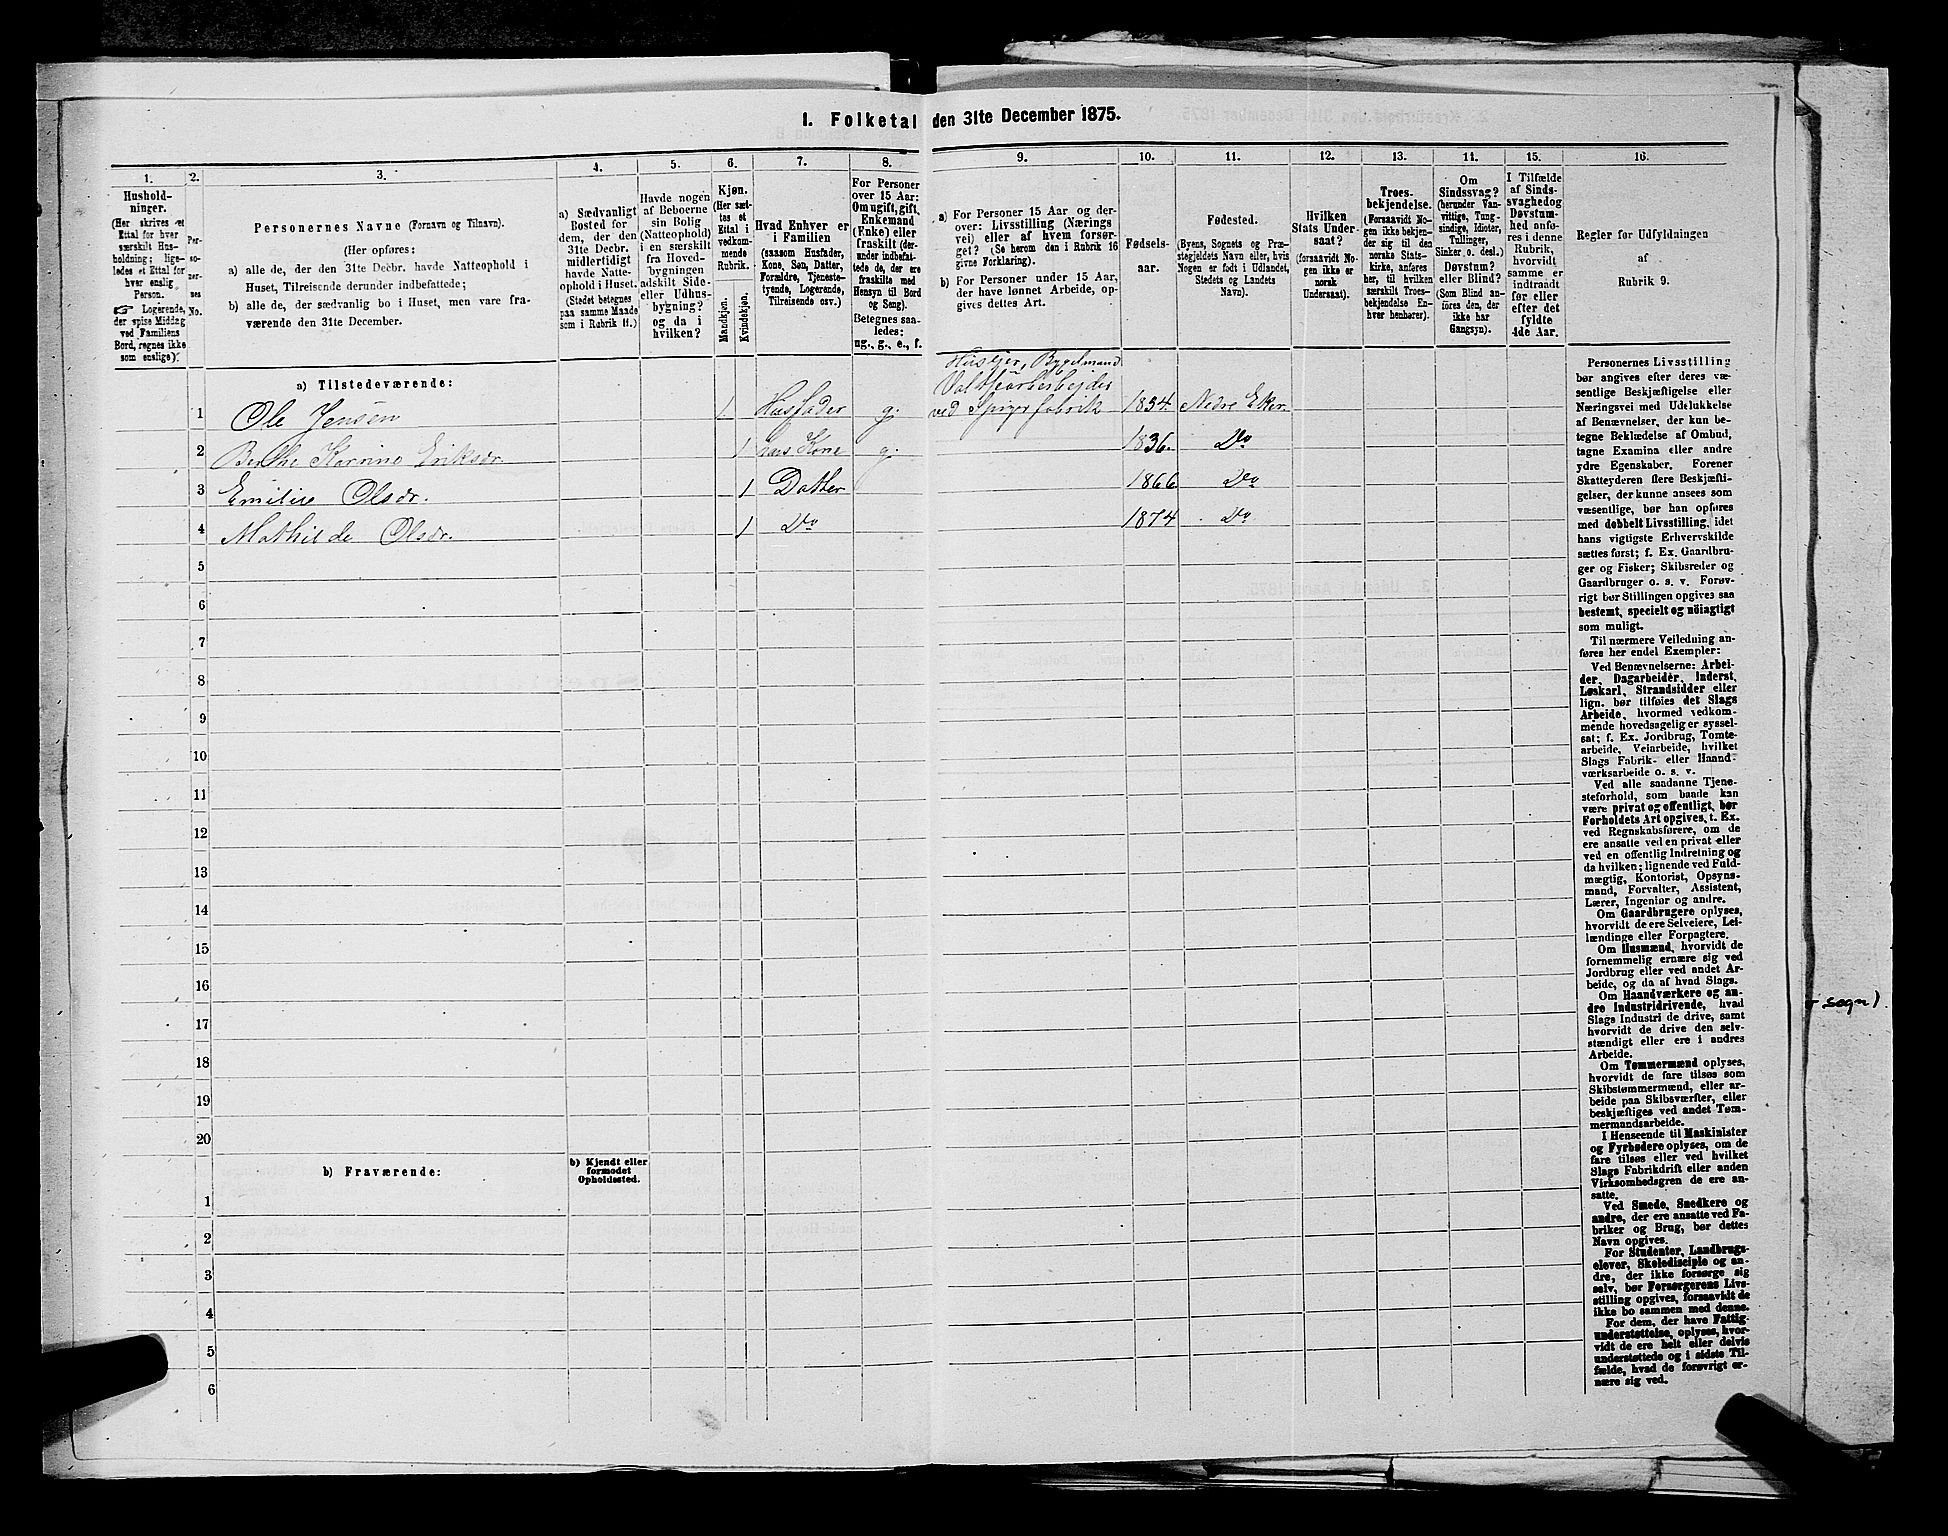 1. Folketal den 31te December 1875.
1. 2. 3. 4. 5. 6. 7. 8. 9. 10. 11. 12. 13. 14. 15. 16.
Hushold-
ninger.
(Her skrives et
Ettal for hver
særskilt Hus-
holdning; lige-
ledes et Ettal for
hver enslig
Person.
☞ Logerende,
der spise Middag
ved Familiens
Bord, regnes ikke
som enslige).
Per-
so-
ner-
nes
No.
Personernes Navne (Fornavn og Tilnavn).
(Her opføres:
a) alle de, der den 31te Decbr. havde Natteophold i
Huset, Tilreisende derunder indbefattede;
b) alle de, der sædvanlig bo i Huset, men vare fra-
værende den 31te December.
a) Sædvanligt
Bosted for
dem, der den
31te Decbr.
midlertidigt
havde Natte-
ophold i Huset.
(Stedet betegnes
paa samme Maade
som i Rubrik 11.)
Havde nogen
af Beboerne
sin Bolig
(Natteophold)
i en særskilt
fra Hoved-
bygningen
adskilt Side-
eller Udhus-
bygning?
og da i
hvilken?
Kjøn.
(Her sæt-
tes et
Ettal i
vedkom-
mende
Rubrik.
Mandkjøn.
Kvindekjøn.
Hvad Enhver er
i Familien
(saasom Husfader,
Kone, Søn, Datter,
Forældre, Tjeneste-
tyende, Logerende,
Tilreisende osv.)
For Personer
over 15 Aar:
Om ugift, gift,
Enkemand
(Enke) eller
fraskilt (der-
under indbefat-
tede de, der ere
fraskilte med
Hensyn til Bord
og Seng).
Betegnes saa-
ledes:
ug., g., e., f.
a) For Personer 15 Aar og der-
over: Livsstilling (Nærings
vei) eller af hvem forsør-
get? (Se herom den i Rubrik 16
givne Forklaring).
b) For Personer under 15 Aar,
der have lønnet Arbeide, op-
gives dettes Art.
Fødsels-
aar.
Fødested.
(Byens, Sognets og Præ-
stegjeldets Navn eller, hvis
Nogen er født i Udlandet,
Stedets og Landets
Navn).
Hvilken
Stats Under-
saat?
(forsaavidt No-
gen ikke er
norsk
Undersaat).
Troes-
bekjendelse.
(Forsaavidt No-
gen ikke bekjen-
der sig til den
norske Stats-
kirke, anføres
her, til hvilken
særskilt Troes-
bekjendelse En-
hver henhører).
Om
Sindssvag?
(herunder Van-
vittige, Tung-
sindige, Idioter,
Tullinger,
Sinker o. desl.).
Døvstum?
eller Blind?
(Som Blind an-
føres den, der
ikke har
Gangsyn).
I Tilfælde
af Sinds-
svaghed og
Døvstum-
hed anfø-
res i denne
Rubrik,
hvorvidt
samme er
indtraadt
før eller
efter det
fyldte
4de Aar.
Regler for Udfyldningen
af
Rubrik 9.
a) Tilstedeværende:
Huseier, Bygselmand
1 Ole Jensen 1 Husfader g. ved Spigerfabrik 1834. Nedre Eker.
2 Berthe Karine Eriksdr. 1 hans Kone g. 1836. Do
3 Emilie Olsdr. 1 Datter 1866 Do
4 Mathilde Olsdr. 1 Do 1874 Do
5
6
7
8
9
10
11
12
13
14
15
16
17
18
19
20
b) Fraværende:
b) Kjendt eller
formodet
Opholdssted.
1
2
3
4
5
6
Personernes Livsstilling
bør angives efter deres væ-
sentlige Beskjæftigelse eller
Næringsvei med Udelukkelse
af Benævnelser, der kun be-
tegne Beklædelse af Ombud,
tagne Examina eller andre
ydre Egenskaber. Forener
Skatteyderen flere Beskjæfti-
gelser, der kunne ansees som
væsentlige, bør han opføres
med dobbelt Livsstilling, idet
hans vigtigste Erhvervskilde
sættes først; f. Ex. Gaardbru-
ger og Fisker; Skibsreder og
Gaardbruger o. s. v. Forøv-
rigt bør Stillingen opgives saa
bestemt, specielt og nöiagtigt
som muligt.
Til nærmere Veiledning an-
føres her endel Exempler:
Ved Benævnelserne: Arbei-
der, Dagarbeider, Inderst,
Løskarl, Strandsidder eller
lign. bør tilføies det Slags
Arbeide, hvormed vedkom-
mende hovedsagelig er syssel-
sat; f. Ex. Jordbrug, Tomte-
arbeide, Veiarbeide, hvilket
Slags Fabrik- eller Haand-
værksarbeide o. s. v.
Ved alle saadanne Tjene-
steforhold, som baade kan
være privat og offentligt, bør
Forholdets Art opgives, t. Ex.
ved Regnskabsførere, om de
ere ansatte ved en privat eller
ved en offentlig Indretning og
da hvilken; lignende ved Fuld-
mægtig, Kontorist, Opsyns-
mand, Forvalter, Assistent,
Lærer, Ingeniør og andre.
Om Gaardbrugere oplyses,
hvorvidt de ere Selveiere, Lei-
lændinge eller Forpagtere.
Om Husmænd, hvorvidt de
fornemmelig ernære sig ved
Jordbrug eller ved andet Ar-
beide, og da af hvad Slags.
Om Haandværkere og an-
dre Industridrivende, hvad
Slags Industri de drive, samt
hvorvidt de drive den selv-
stændigt eller ere i andres
Arbeide.
Om Tømmermænd oplyses,
hvorvidt de fare tilsøs som
Skibstømmermænd, eller ar-
beide paa Skibsværfter, eller
beskjæftiges ved andet Tøm-
mermandsarbeide.
I Henseende til Maskinister
og Fyrbødere oplyses, om de
fare tilsøs eller ved hvilket
Slags Fabrikdrift eller anden
Virksomhedsgren de ere an-
satte.
Ved Smede, Snedkere og
andre, der ere ansatte ved Fa-
briker og Brug, bør dettes
Navn opgives.
For Studenter, Landbrugs-
elever, Skoledisciple og an-
dre, der ikke forsørge sig
selv, bør Forsørgerens Livs-
stilling opgives, forsaavidt de
ikke bo sammen med denne.
For dem, der have Fattig-
understøttelse, oplyses, hvor-
vidt de ere helt eller delvis
understøttede og i sidste Til-
fælde, hvad de forøvrigt er-
nære sig ved.
sogn).